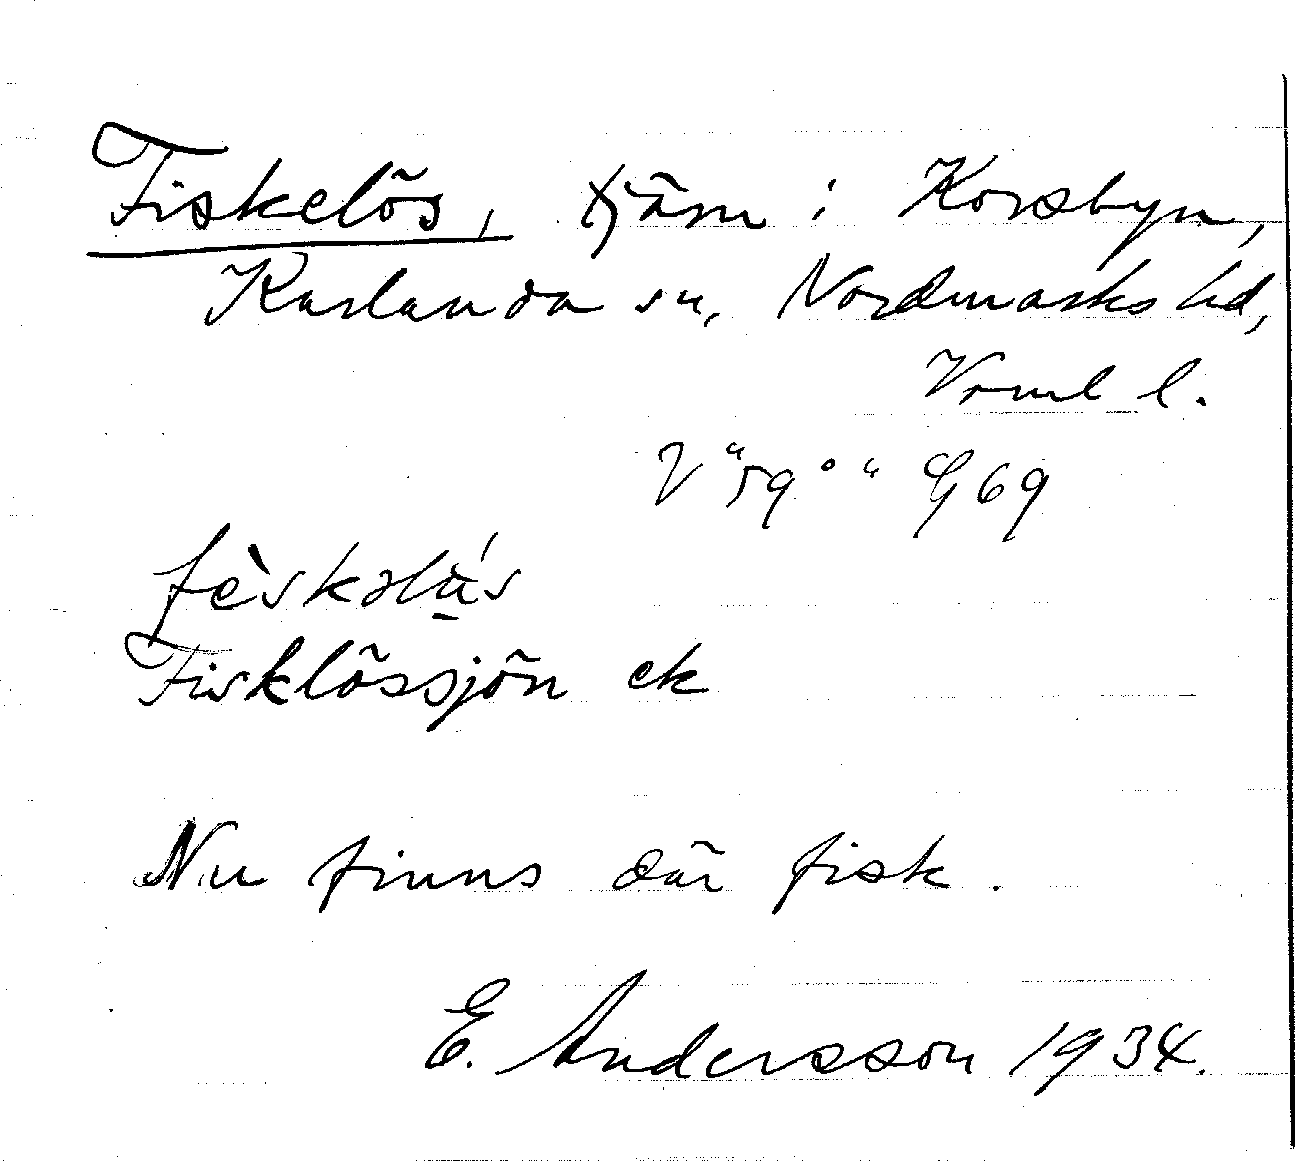 Fiskelös, tjärn i Korsbyn,
Karlanda sn, Nordmarks hd,
Vrml l.
fèskəlǘs
Fisklössjön ek
Nu finns där fisk.
E. Andersson 1934.